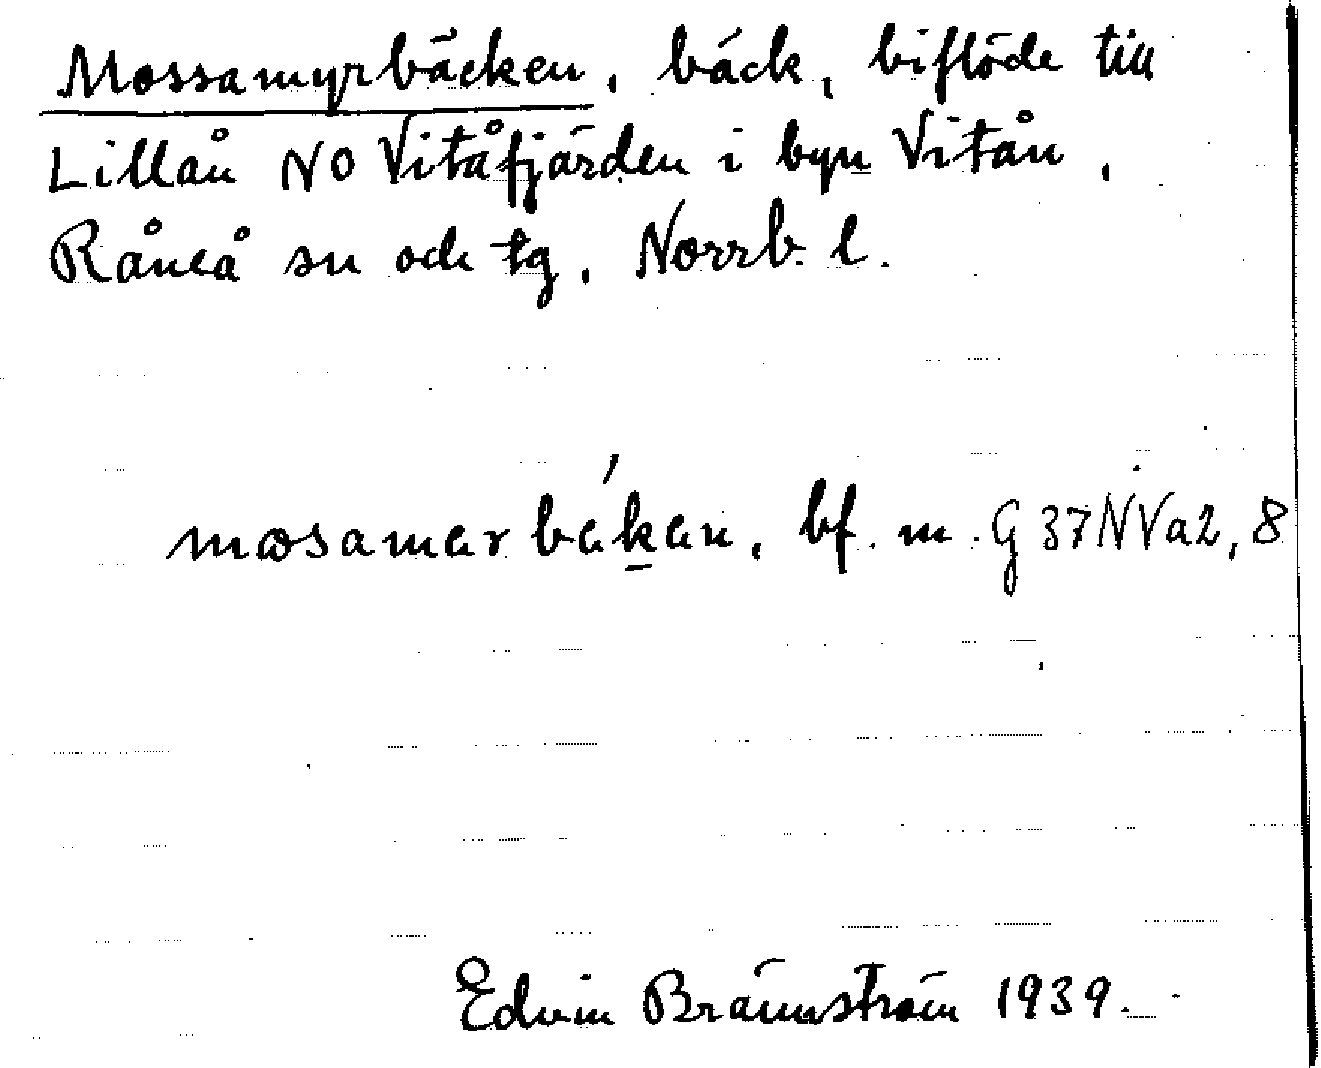 Mossamyrbäcken, bäck, biflöde till
Lillån NO Vitåfjärden i byn Vitån,
Råneå sn och tg, Norrb. l.
mosamərbækən, bf. m. G 37 NV a 2, 8
Edvin Brännström 1939.